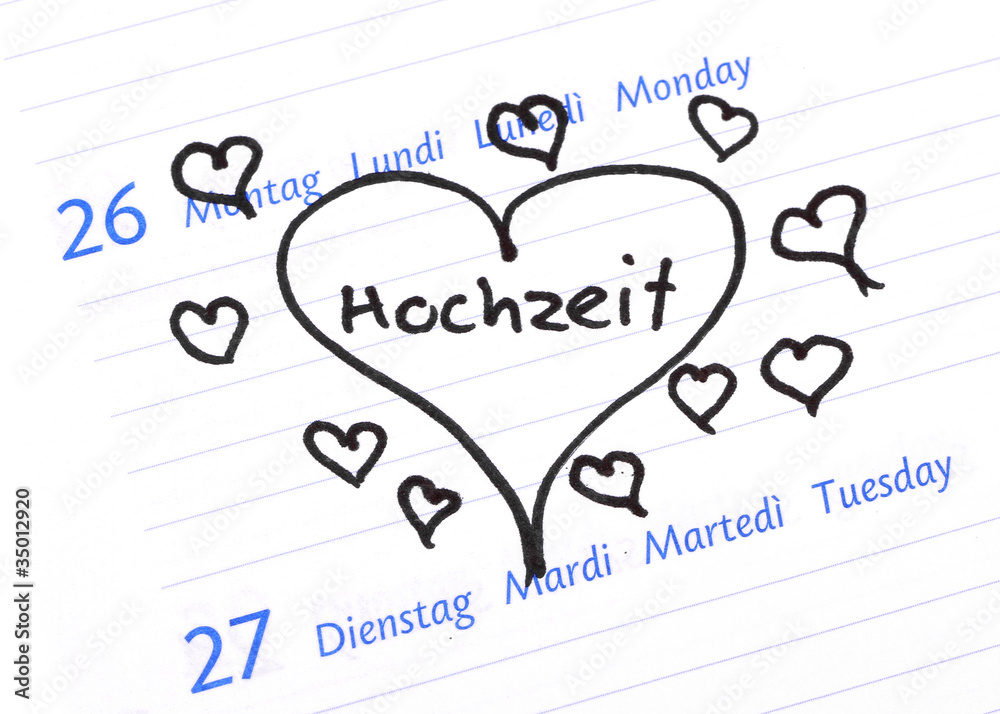 26 Montag Lundi Lunedì Monday
Hochzeit
27 Dienstag Mardi Martedì Tuesday
Adobe Stock | #35012920